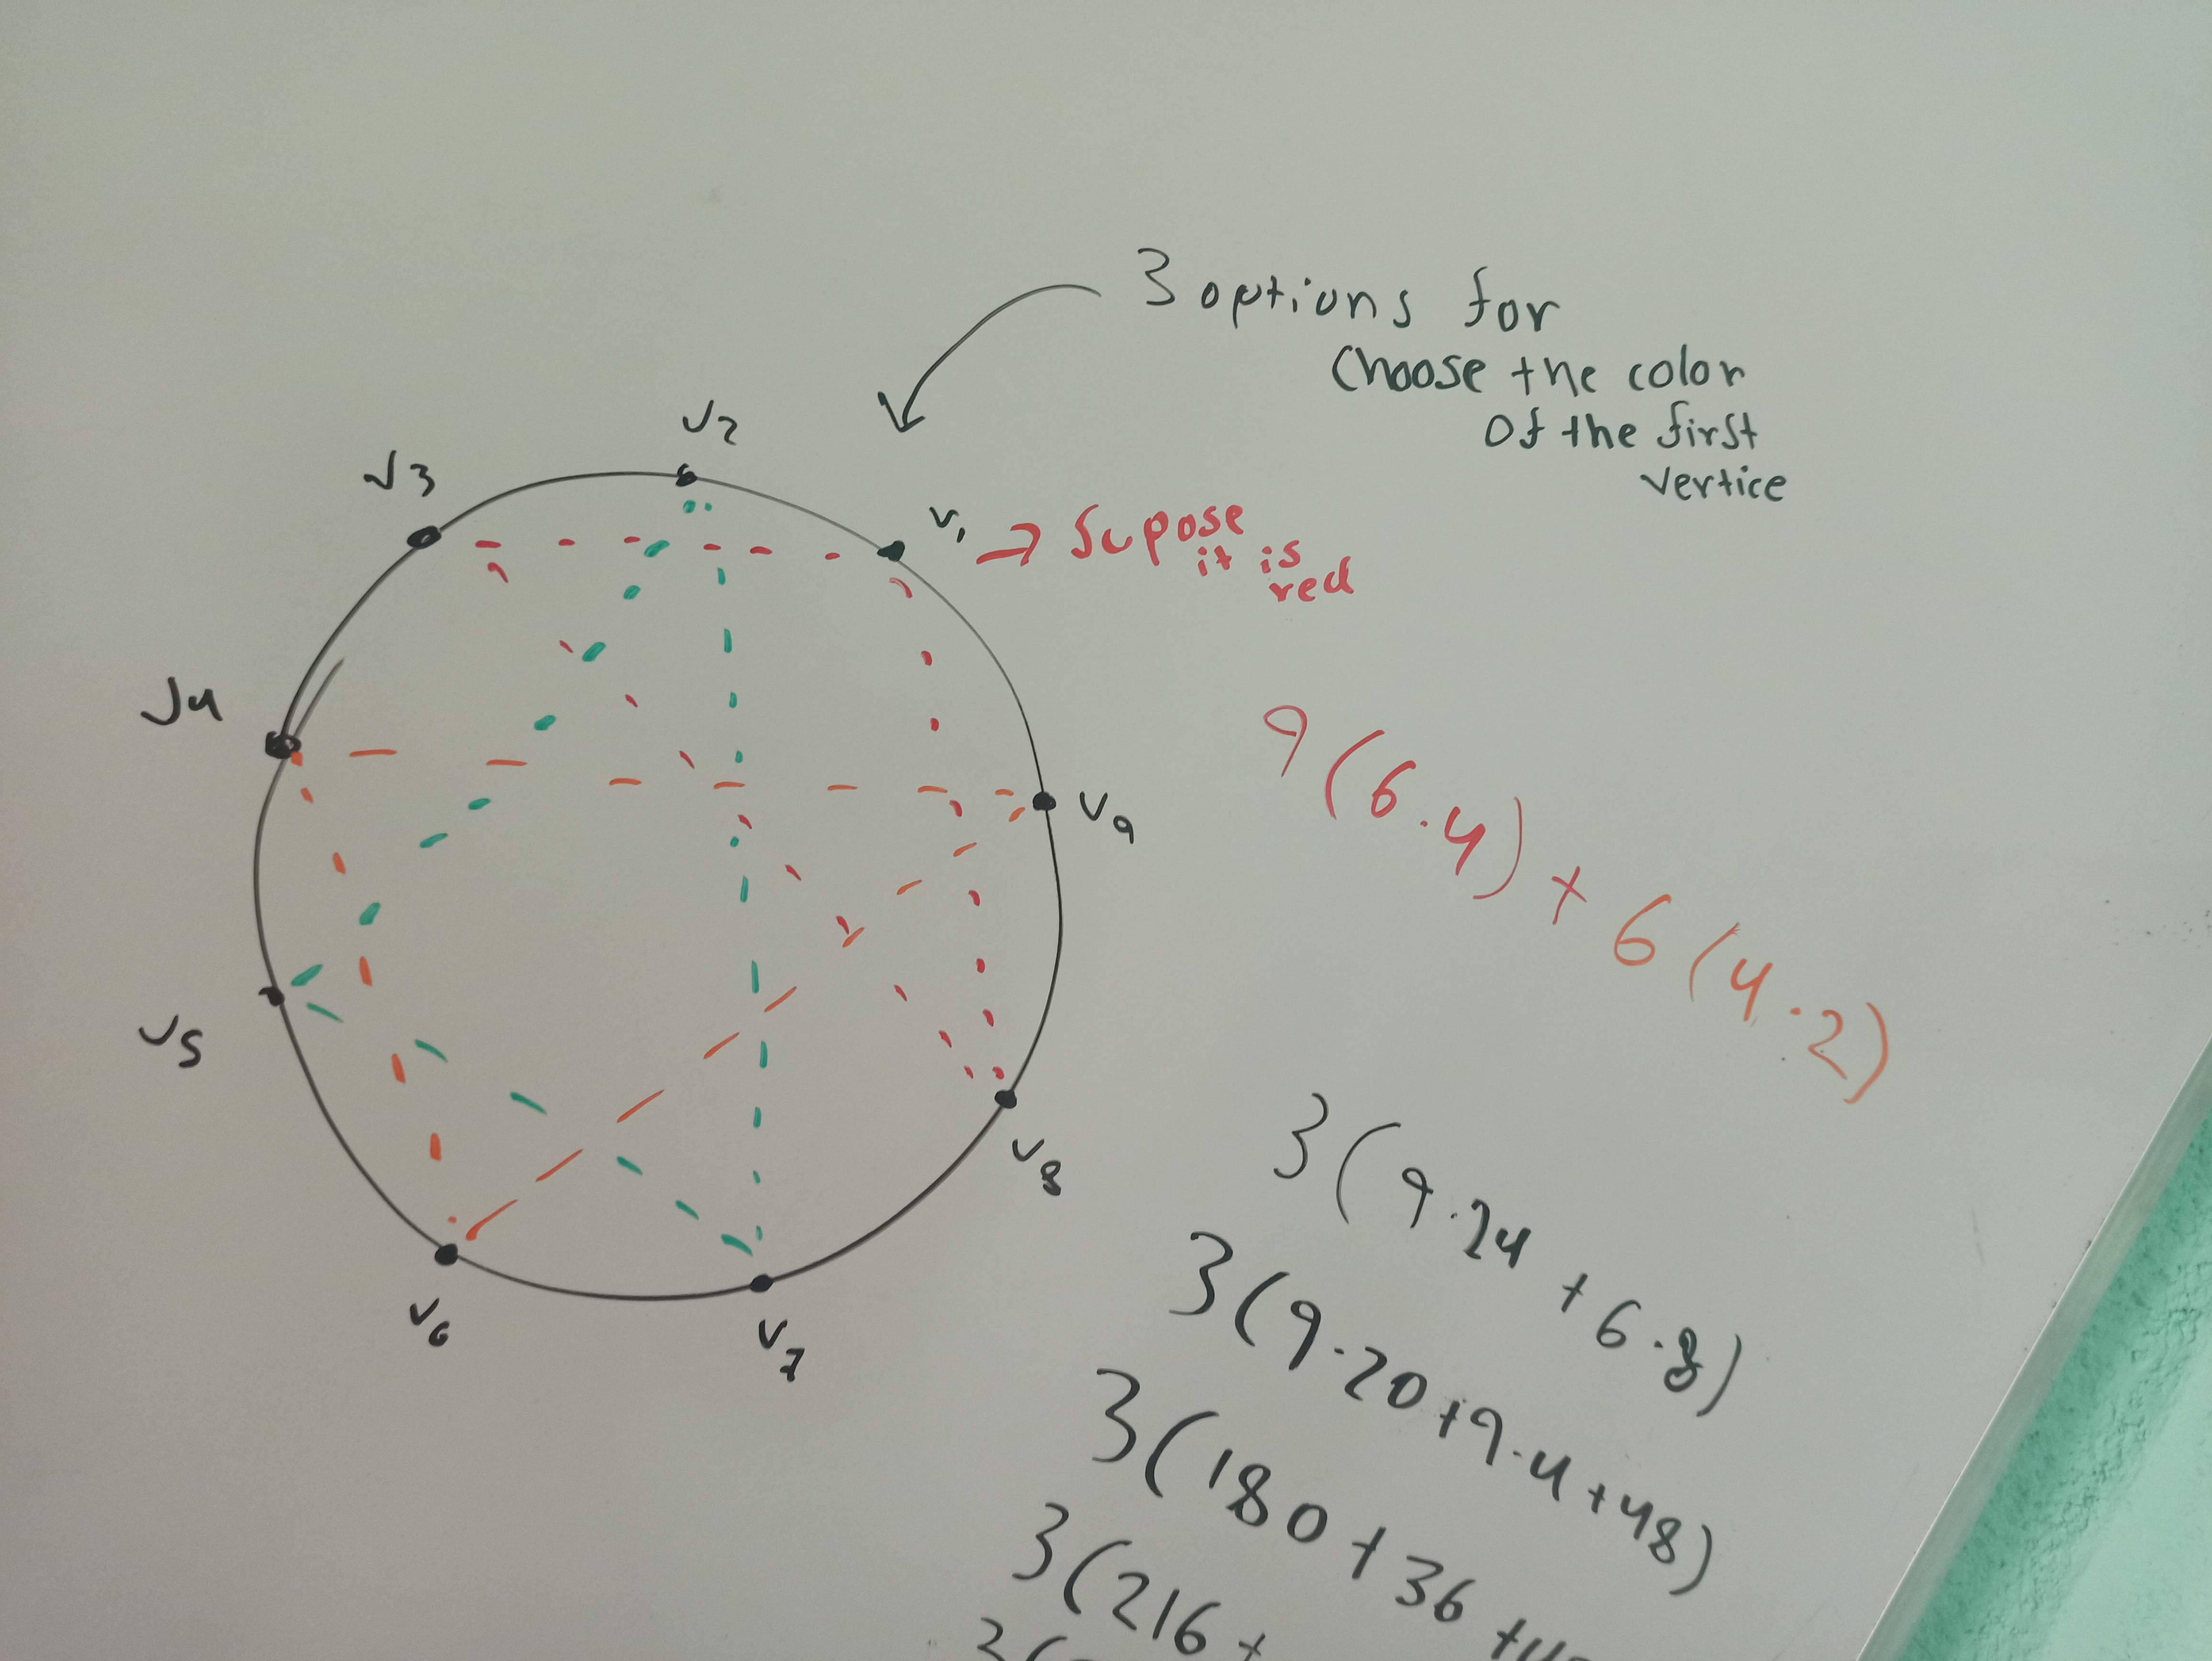 3 options for
choose the color
of the first
vertice
v2
v3
v1 → Supose
it is
red
v4
v9
v5
v8
v6
v7
9(6.4) + 6(4.2)
3(9.24 + 6.8)
3(9.20+9.4+48)
3(180+36+4
3(216+
3(